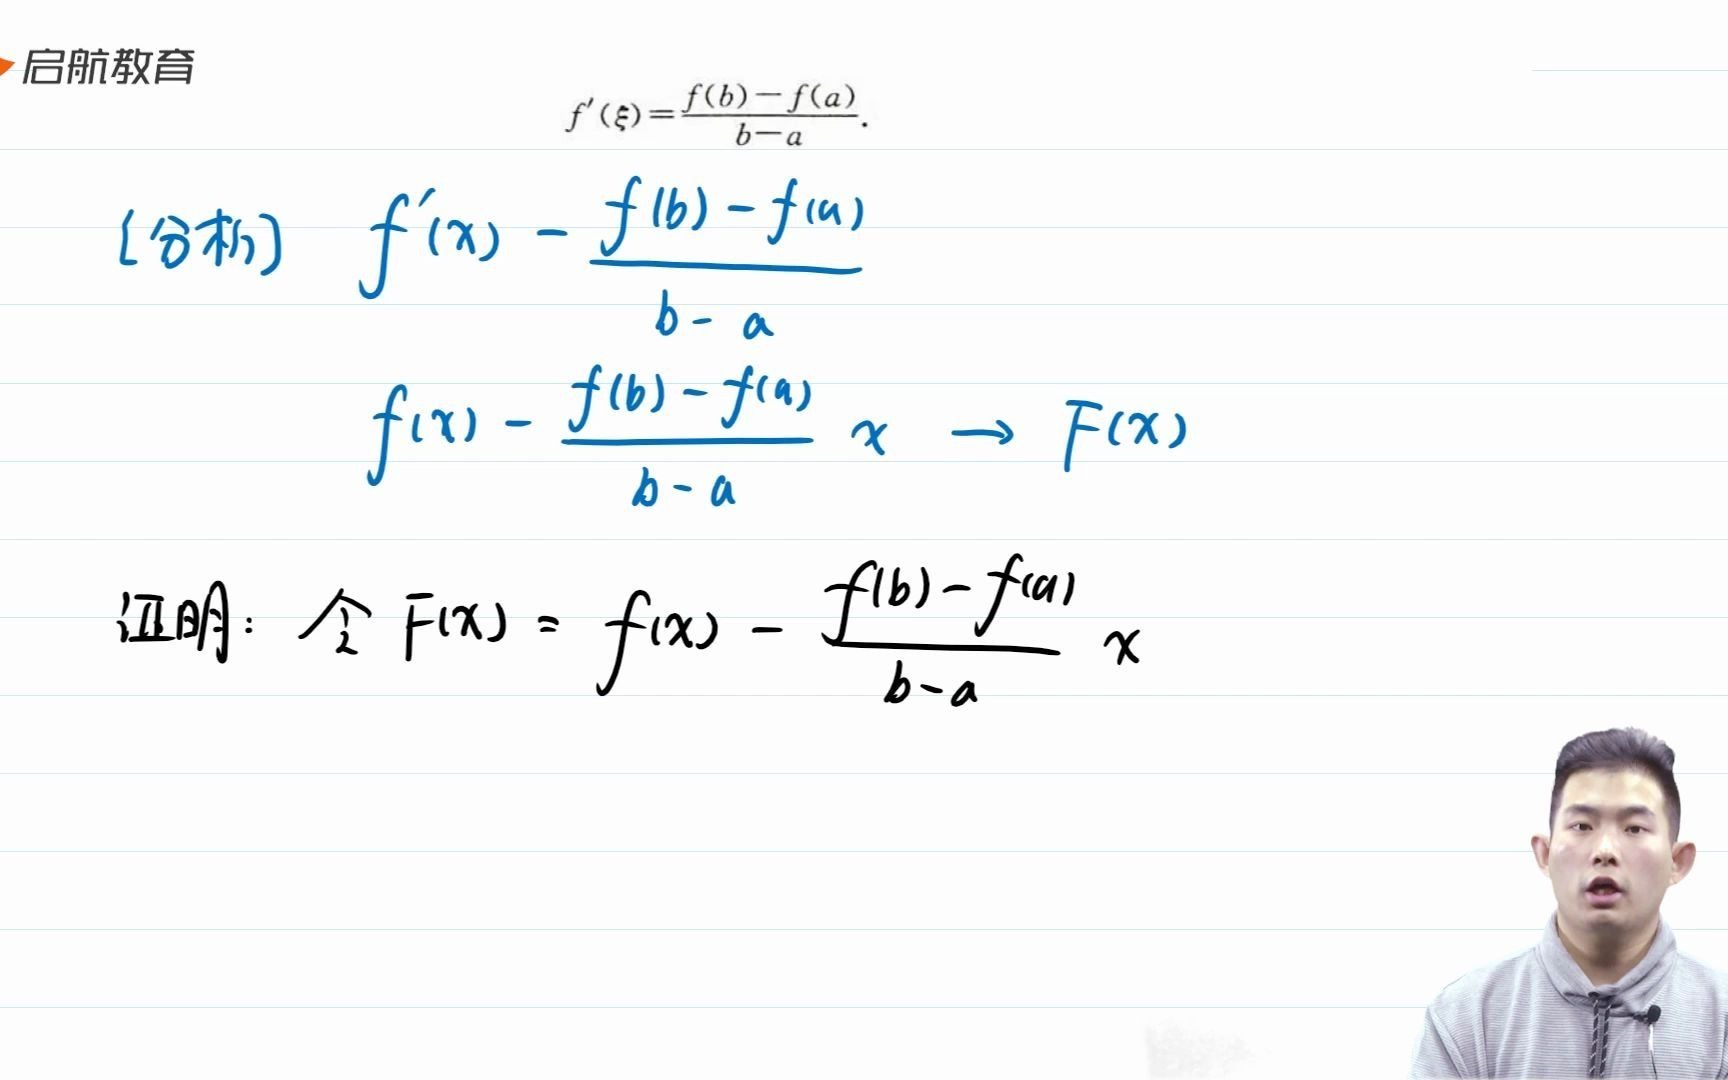 启航教育
f'(ξ)=\frac{f(b)-f(a)}{b-a}.
[分析] f'(x) - \frac{f(b)-f(a)}{b-a}
f(x) - \frac{f(b)-f(a)}{b-a} x → F(x)
证明: 令 F(x) = f(x) - \frac{f(b)-f(a)}{b-a} x